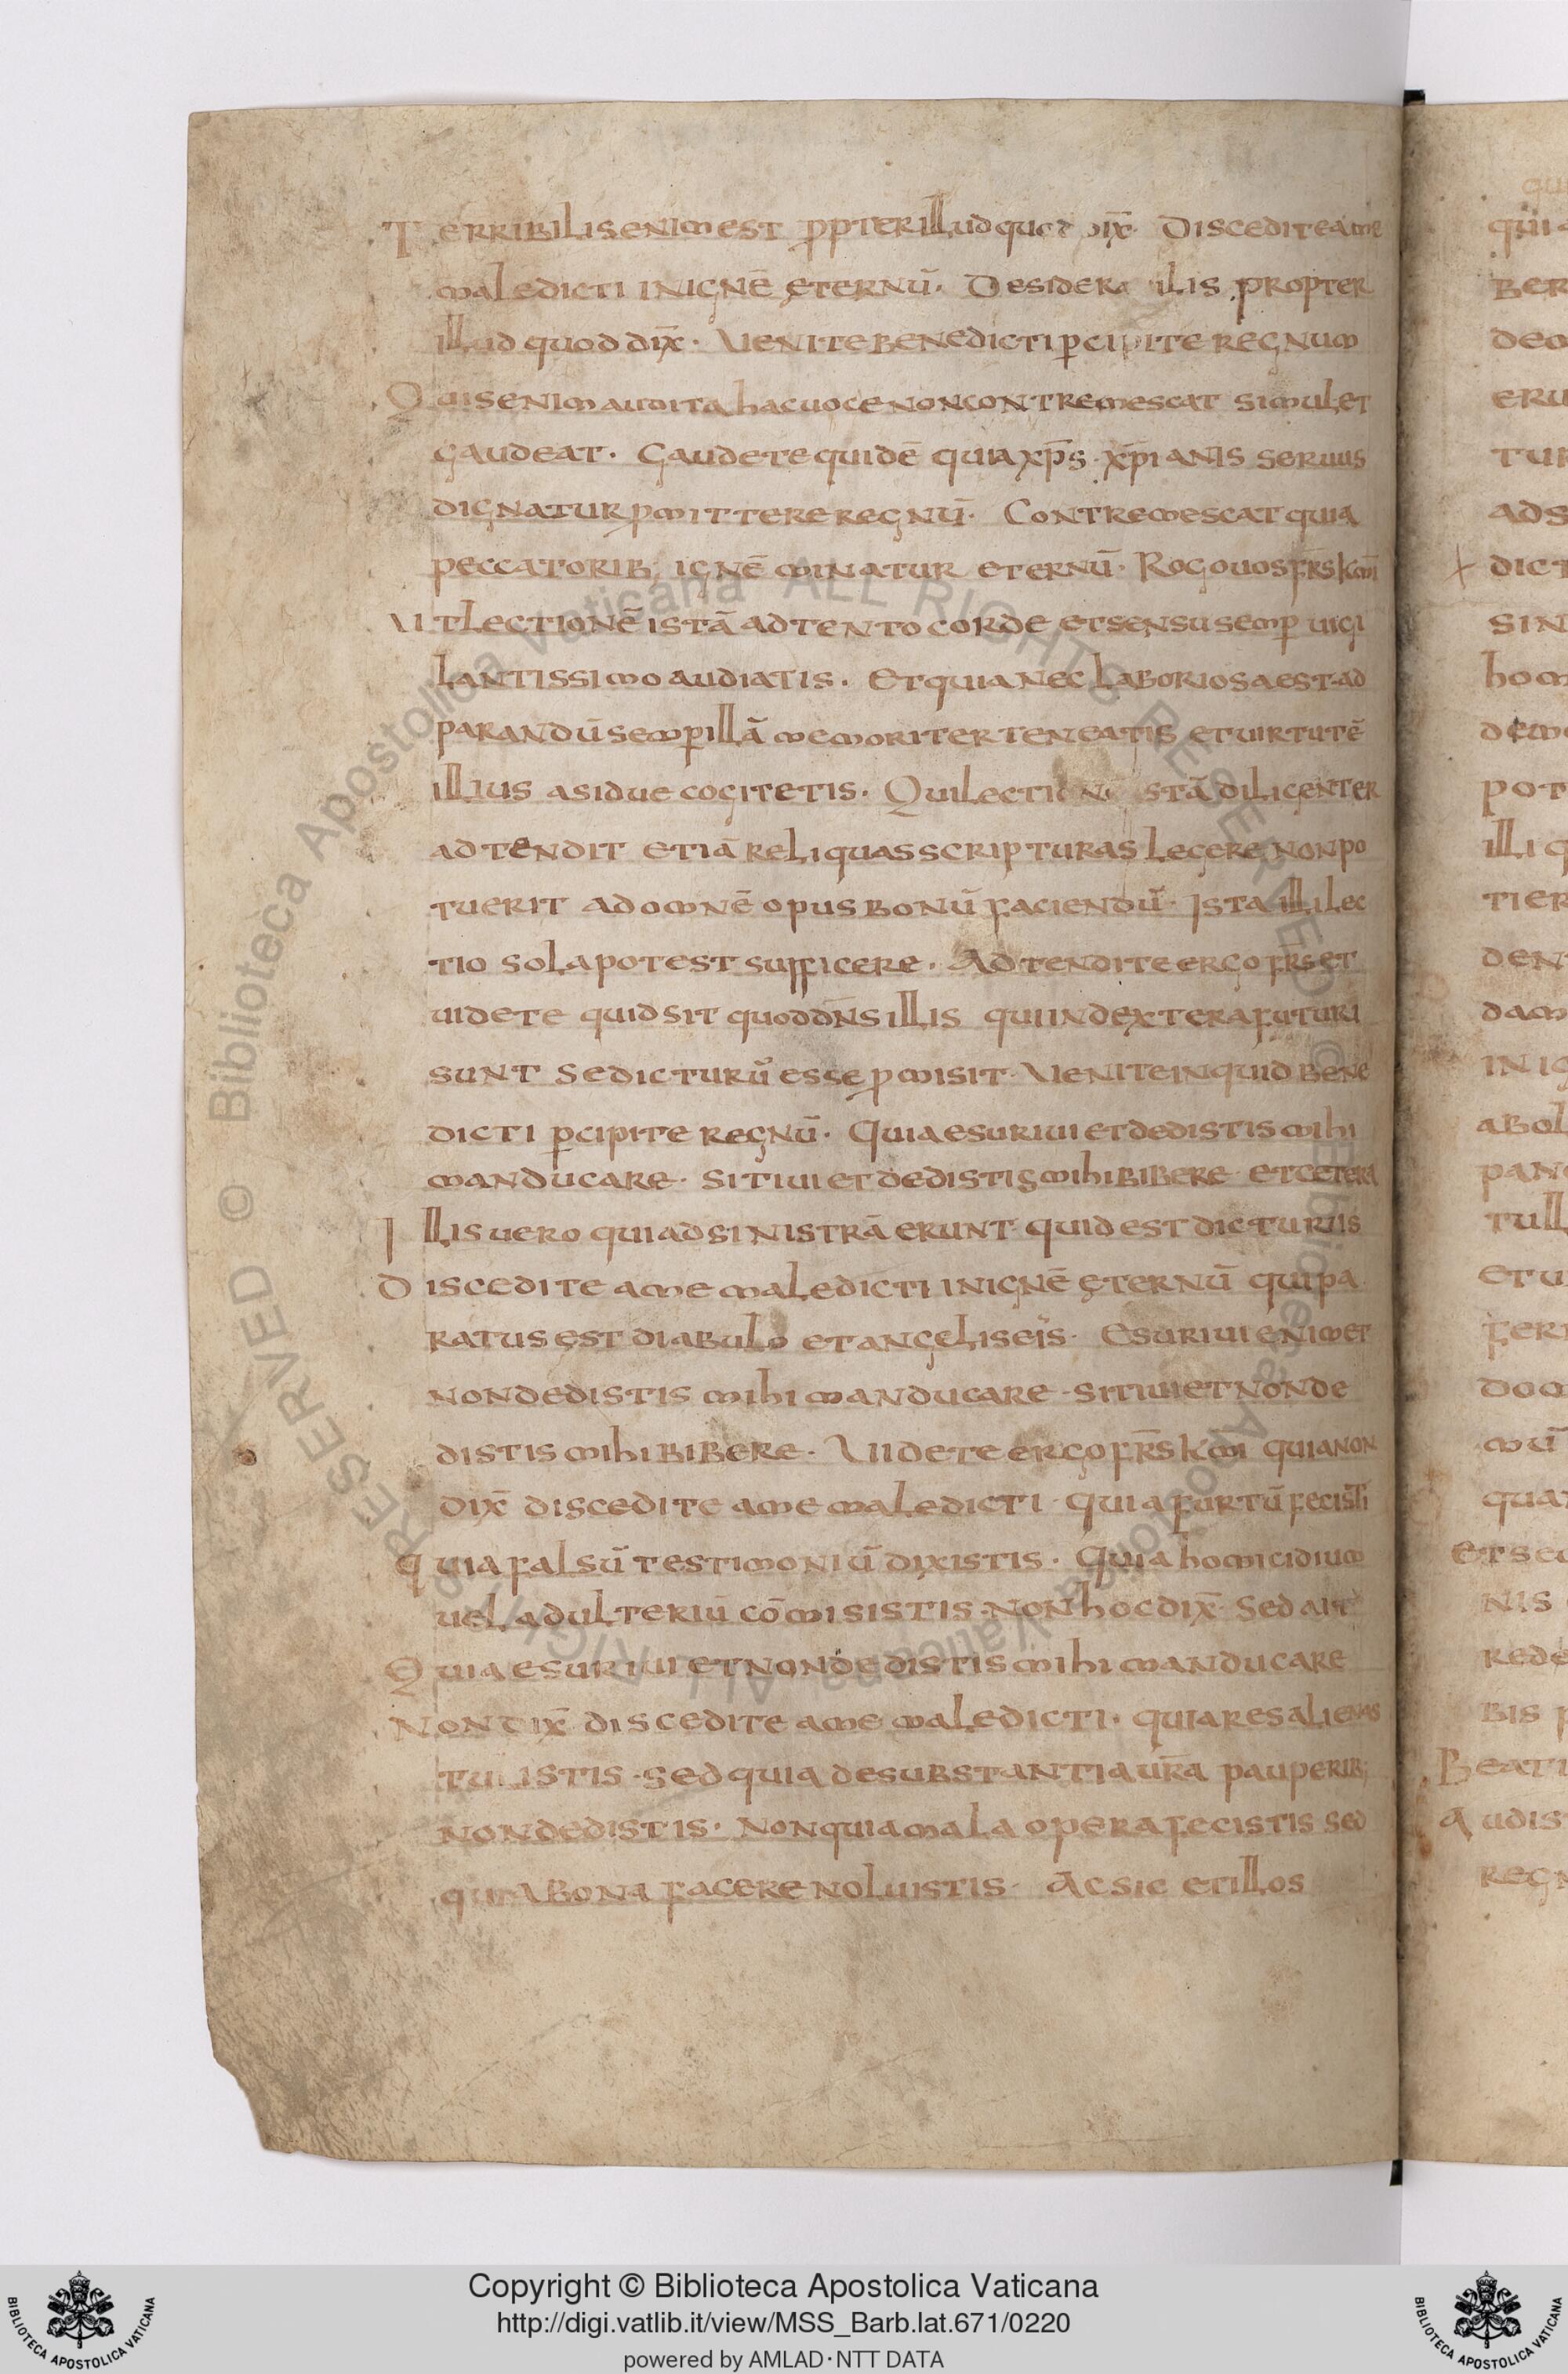 Terribilis enim est ꝓpter illud quod dix̄· Discedite a me
maledicti in ignē ęternū· Desiderabilis propter
illud quod dix̄· Uenite benedicti ꝑcipite regnum
Quis enim audita hac uoce non contremescat simul et
gaudeat· Gaudete quidē quia xp̄s xp̄ianis seruus
dignatur ꝓmittere regnū· Contremescat quia
peccatorib; ignē minatur eternū· Rogo uos fr̄s km̄i
Ut lectionē istā adtento corde et sensu semꝑ uigi
lantissimo audiatis· Et quia nec laboriosa est ad
parandū semꝑ illā memoriter teneatis et uirtutē
illius asidue cogitetis· Qui lectione istā diligenter
adtendit etiā reliquas scripturas legere non po
tuerit ad omnē opus bonū faciendū· Ista illi lec
tio sola potest sufficere· Adtendite ergo fr̄s et
uidete quid sit quod dn̄s illis qui in dextera futuri
sunt se dicturū esse ꝓmisit· Uenite inquid bene
dicti ꝑcipite regnū· Quia esuriui et dedistis mihi
manducare· sitiui et dedistis mihi bibere et cetera
Illis uero qui ad sinistrā erunt quid est dicturus
Discedite a me maledicti in ignē ęternū qui pa
ratus est diabulo et angelis eis· Esuriui enim et
non dedistis mihi manducare· sitiui et non de
distis mihi bibere· Uidete ergo fr̄s km̄i quia non
dix̄ discedite a me maledicti· quia furtū fecisti
quia falsū testimoniū dixistis· Quia homicidium
uel adulteriū cōmisistis· non hoc dix̄· Sed ait
Quia esuriui et non dedistis mihi manducare
Non dix̄ discedite a me maledicti· quia res alienas
tulistis· sed quia de substantia ur̄a pauperib;
non dedistis· Non quia mala opera fecistis sed
quia bona facere noluistis· Ac sic et illos
© Biblioteca Apostolica Vaticana ALL RIGHTS RESERVED
Copyright © Biblioteca Apostolica Vaticana
http://digi.vatlib.it/view/MSS_Barb.lat.671/0220
powered by AMLAD·NTT DATA
BIBLIOTECA APOSTOLICA VATICANA
BIBLIOTECA APOSTOLICA VATICANA